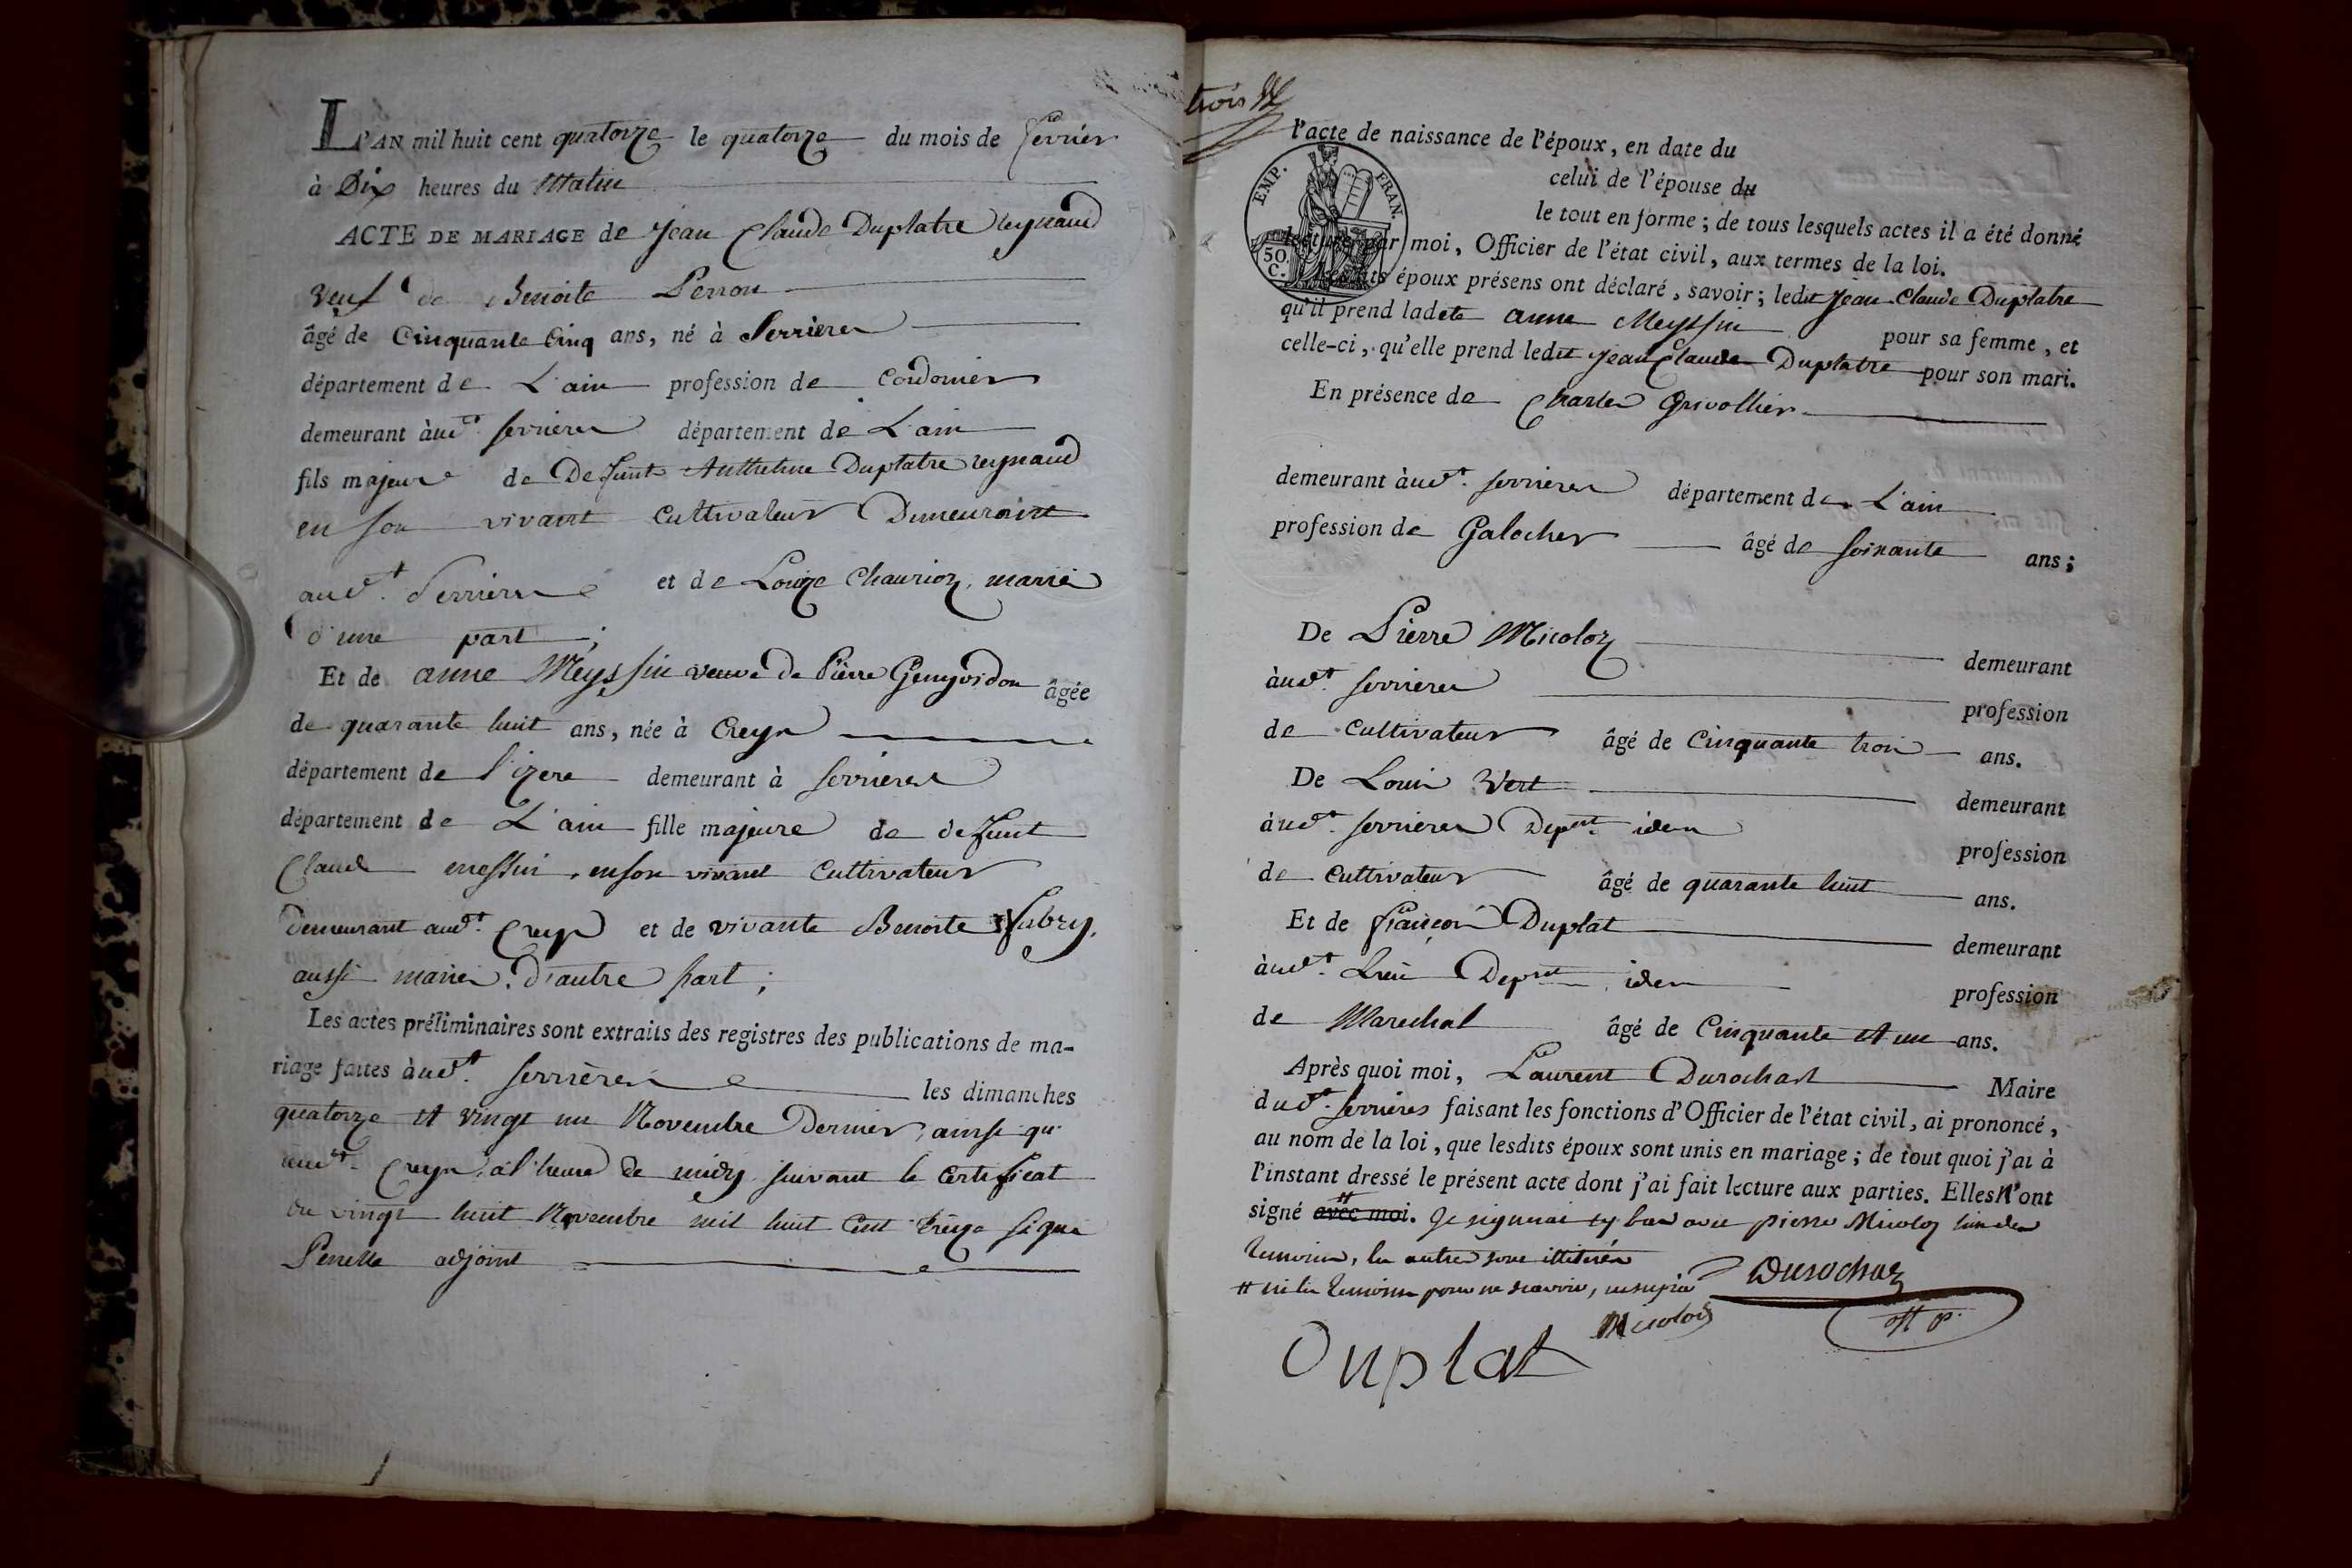 L'AN mil huit cent quatorze le quatorze du mois de fevrier
à Dix heures du Matin
ACTE DE MARIAGE de Jean Claude Duplatre reynaud
veuf de Benoite Perron
âgé de Cinquante Cinq ans, né à Serrieres
département de L'ain profession de Cordonier
demeurant àudt. serrieres département de L'ain
fils majeur de Defunt Anthelme Duplatre reynaud
en son vivant Cultivateur Demeurant
audt. Serrieres et de Louize Chaurion, mariés
d'une part;
Et de anne Meyssin veuve de Pierre Genyvidon âgée
de quarante huit ans, née à Creys
département de l'izere demeurant à serrieres
département de L'ain fille majeure de defunt
Claude messin, en son vivant Cultivateur
Demeurant audt. Creys et de vivante Benoite fabry,
aussi mariés. d'autre part;
Les actes préliminaires sont extraits des registres des publications de ma-
riage faites àudt. serrières les dimanches
quatorze et vingt un Novembre Dernier, ainsi qu'
audt. Creys, à l'heure de midy suivant le Certificat
du vingt huit Novembre mil huit Cent treize signé
Perrelle adjoint
trois
l'acte de naissance de l'époux, en date du
celui de l'épouse du
le tout en forme; de tous lesquels actes il a été donné
EMP. FRAN.
50. C.
lecture par moi, Officier de l'état civil, aux termes de la loi.
Lesdits époux présens ont déclaré, savoir; ledit Jean Claude Duplatre
qu'il prend ladete anne Meyssin pour sa femme, et
celle-ci, qu'elle prend ledit Jean Claude Duplatre pour son mari.
En présence de Charles Grivollier
demeurant àudt. serrieres département de L'ain
profession de Galocher âgé de soixante ans;
De Pierre Micoloz demeurant
àudt. serrieres profession
de Cultivateur âgé de Cinquante trois ans.
De Louis Vert demeurant
àudt. serrieres Depmt. idem profession
de Cultivateur âgé de quarante huit ans.
Et de françois Duplat demeurant
àudt. Lieu Depmt idem profession
de Marechal âgé de Cinquante et un ans.
Après quoi moi, Laurent Durochat Maire
dudt. serrières faisant les fonctions d'Officier de l'état civil, ai prononcé,
au nom de la loi, que lesdits époux sont unis en mariage; de tout quoi j'ai à
l'instant dressé le présent acte dont j'ai fait lecture aux parties. Elles n'ont
signé avec moi. Je signerai cy bas avec pierre Micoloz l'un des
temoins, les autres sont illitirés
# ni les temoins pour ne scavoir, ce requis
Durochat
Micoloz
Duplat